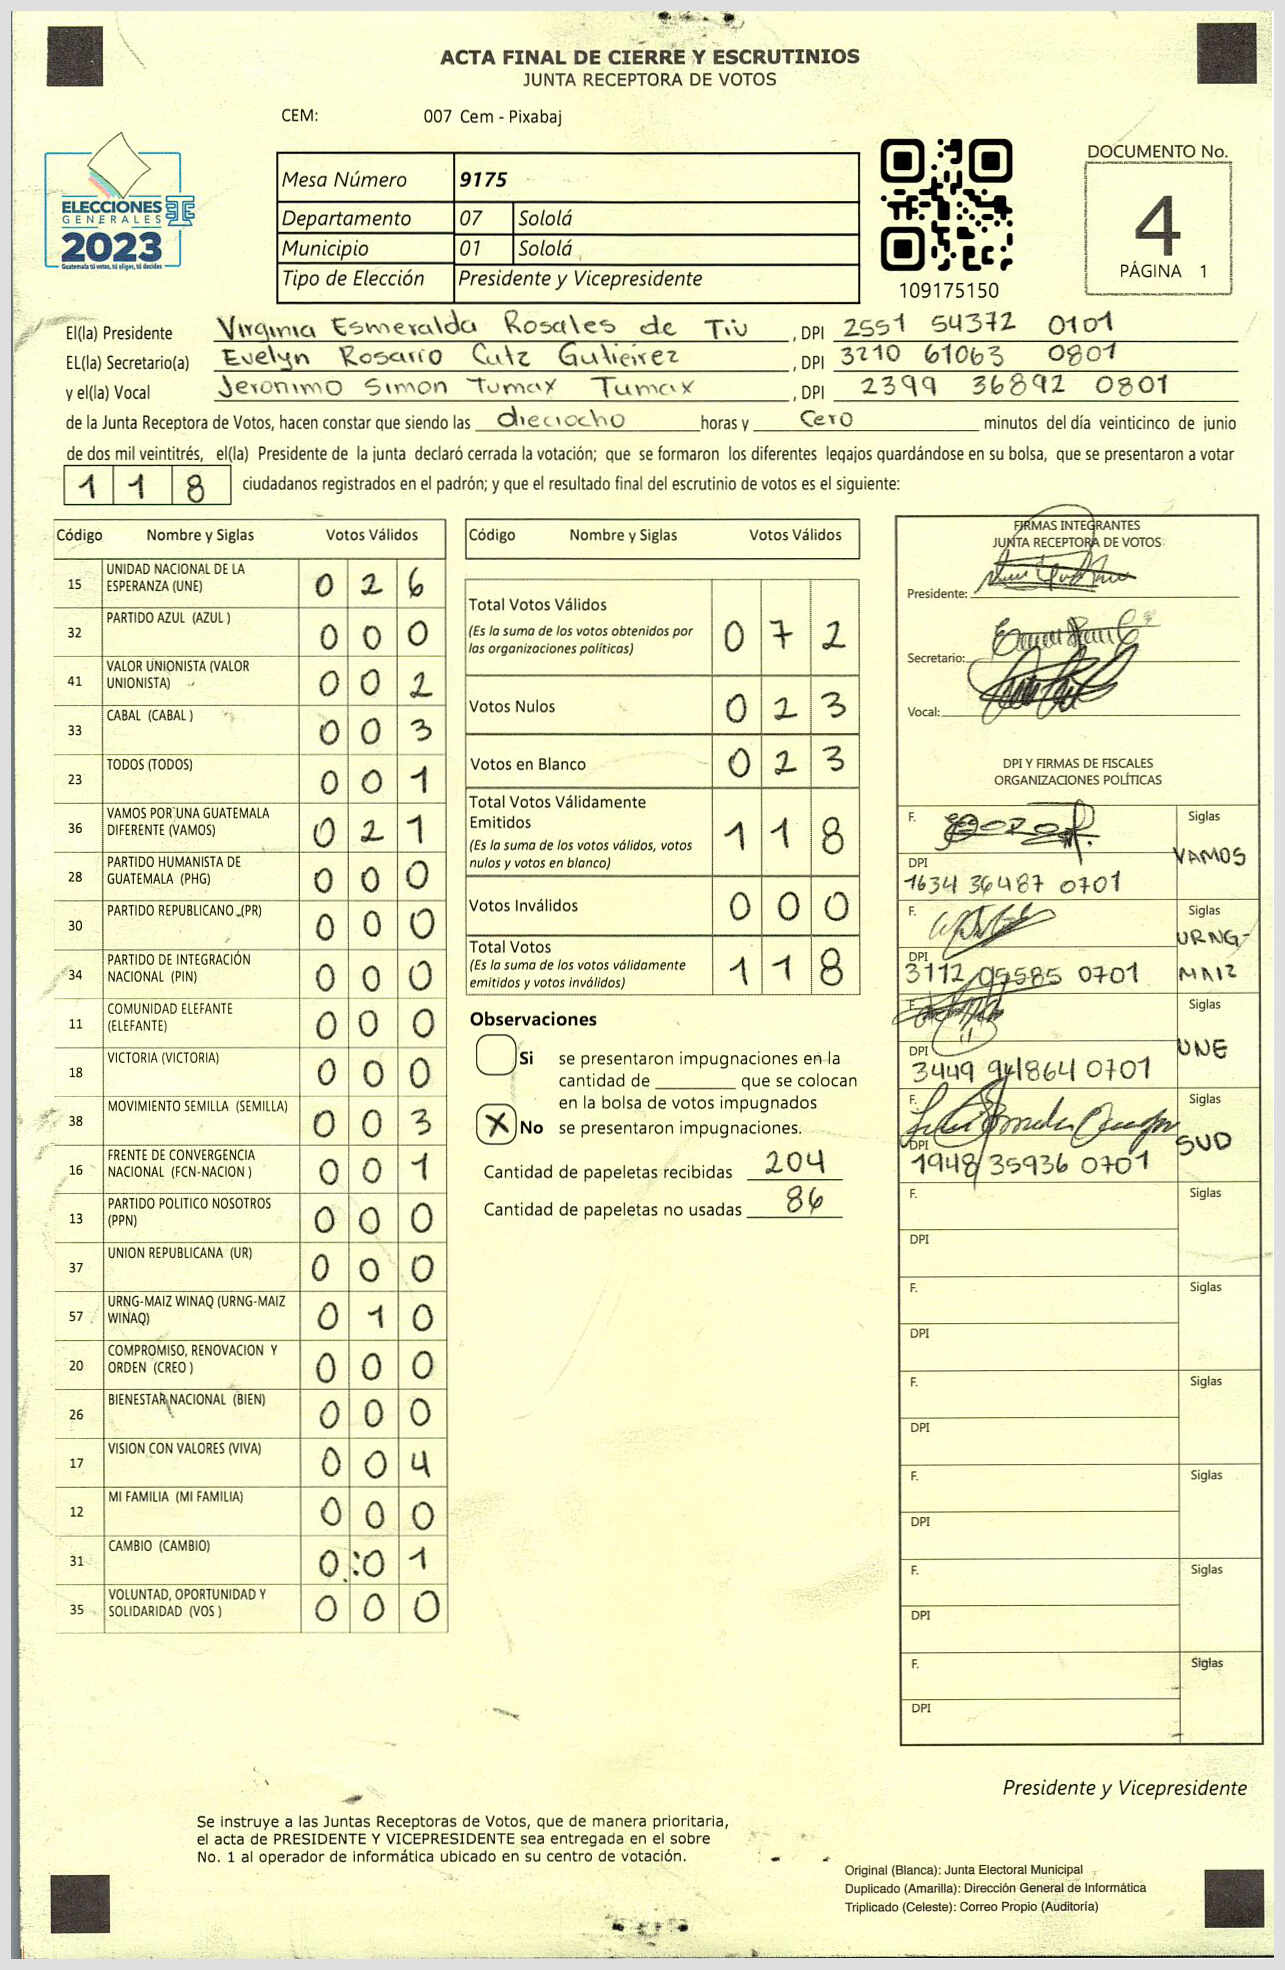 ACTA FINAL DE CIERRE Y ESCRUTINIOS
JUNTA RECEPTORA DE VOTOS
CEM: 007 Cem - Pixabaj
ELECCIONES
GENERALES
2023
Guatemala tú votas, tú eliges, tú decides
Mesa Número 9175
Departamento 07 Sololá
Municipio 01 Sololá
Tipo de Elección Presidente y Vicepresidente
109175150
DOCUMENTO No.
4
PÁGINA 1
El(la) Presidente Virginia Esmeralda Rosales de Tiu , DPI 2551 54372 0101
EL(la) Secretario(a) Evelyn Rosario Cutz Gutiérrez , DPI 3210 61063 0801
y el(la) Vocal Jeronimo Simon Tumax Tumax , DPI 2399 36892 0801
de la Junta Receptora de Votos, hacen constar que siendo las dieciocho horas y Cero minutos del día veinticinco de junio
de dos mil veintitrés, el(la) Presidente de la junta declaró cerrada la votación; que se formaron los diferentes legajos quardándose en su bolsa, que se presentaron a votar
118 ciudadanos registrados en el padrón; y que el resultado final del escrutinio de votos es el siguiente:
Código Nombre y Siglas Votos Válidos
15 UNIDAD NACIONAL DE LA
ESPERANZA (UNE) 0 2 6
32 PARTIDO AZUL (AZUL ) 0 0 0
41 VALOR UNIONISTA (VALOR
UNIONISTA) 0 0 2
33 CABAL (CABAL ) 0 0 3
23 TODOS (TODOS) 0 0 1
36 VAMOS POR UNA GUATEMALA
DIFERENTE (VAMOS) 0 2 1
28 PARTIDO HUMANISTA DE
GUATEMALA (PHG) 0 0 0
30 PARTIDO REPUBLICANO (PR) 0 0 0
34 PARTIDO DE INTEGRACIÓN
NACIONAL (PIN) 0 0 0
11 COMUNIDAD ELEFANTE
(ELEFANTE) 0 0 0
18 VICTORIA (VICTORIA) 0 0 0
38 MOVIMIENTO SEMILLA (SEMILLA) 0 0 3
16 FRENTE DE CONVERGENCIA
NACIONAL (FCN-NACION ) 0 0 1
13 PARTIDO POLITICO NOSOTROS
(PPN) 0 0 0
37 UNION REPUBLICANA (UR) 0 0 0
57 URNG-MAIZ WINAQ (URNG-MAIZ
WINAQ) 0 1 0
20 COMPROMISO, RENOVACION Y
ORDEN (CREO ) 0 0 0
26 BIENESTAR NACIONAL (BIEN) 0 0 0
17 VISION CON VALORES (VIVA) 0 0 4
12 MI FAMILIA (MI FAMILIA) 0 0 0
31 CAMBIO (CAMBIO) 0 0 1
35 VOLUNTAD, OPORTUNIDAD Y
SOLIDARIDAD (VOS ) 0 0 0
Código Nombre y Siglas Votos Válidos
Total Votos Válidos 0 7 2
(Es la suma de los votos obtenidos por
las organizaciones políticas)
Votos Nulos 0 2 3
Votos en Blanco 0 2 3
Total Votos Válidamente
Emitidos 1 1 8
(Es la suma de los votos válidos, votos
nulos y votos en blanco)
Votos Inválidos 0 0 0
Total Votos 1 1 8
(Es la suma de los votos válidamente
emitidos y votos inválidos)
Observaciones
Si se presentaron impugnaciones en la
cantidad de ________ que se colocan
en la bolsa de votos impugnados
X No se presentaron impugnaciones.
Cantidad de papeletas recibidas 204
Cantidad de papeletas no usadas 86
FIRMAS INTEGRANTES
JUNTA RECEPTORA DE VOTOS
Presidente:
Secretario:
Vocal:
DPI Y FIRMAS DE FISCALES
ORGANIZACIONES POLÍTICAS
F. Siglas
VAMOS
DPI
1634 36487 0701
F. Siglas
URNG-
MAIZ
DPI
3112 95585 0701
F. Siglas
UNE
DPI
3449 941864 0701
F. Siglas
SUD
DPI
1948 35936 0701
F. Siglas
DPI
F. Siglas
DPI
F. Siglas
DPI
F. Siglas
DPI
F. Siglas
DPI
F. Siglas
DPI
Presidente y Vicepresidente
Se instruye a las Juntas Receptoras de Votos, que de manera prioritaria,
el acta de PRESIDENTE Y VICEPRESIDENTE sea entregada en el sobre
No. 1 al operador de informática ubicado en su centro de votación.
Original (Blanca): Junta Electoral Municipal
Duplicado (Amarilla): Dirección General de Informática
Triplicado (Celeste): Correo Propio (Auditoría)